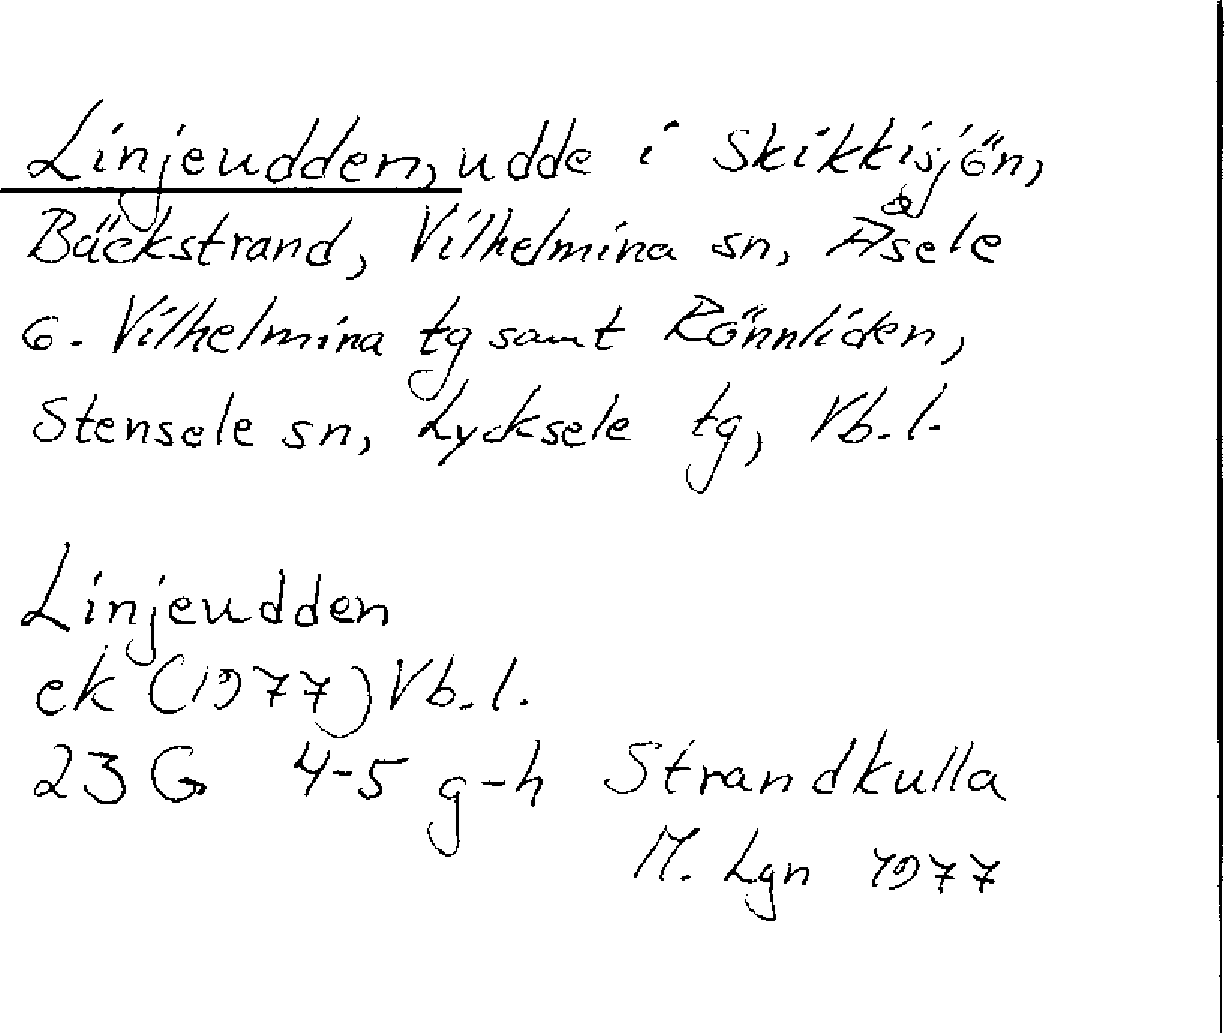 Linjeudden, udde i Skikkisjön,
Bäckstrand, Vilhelmina sn, Åsele
o. Vilhelmina tg samt Rönnliden,
Stensele sn, Lycksele tg, Vb. l.
Linjeudden
ek (1977) Vb. l.
23 G 4-5 g-h Strandkulla
M. Lgn 1977